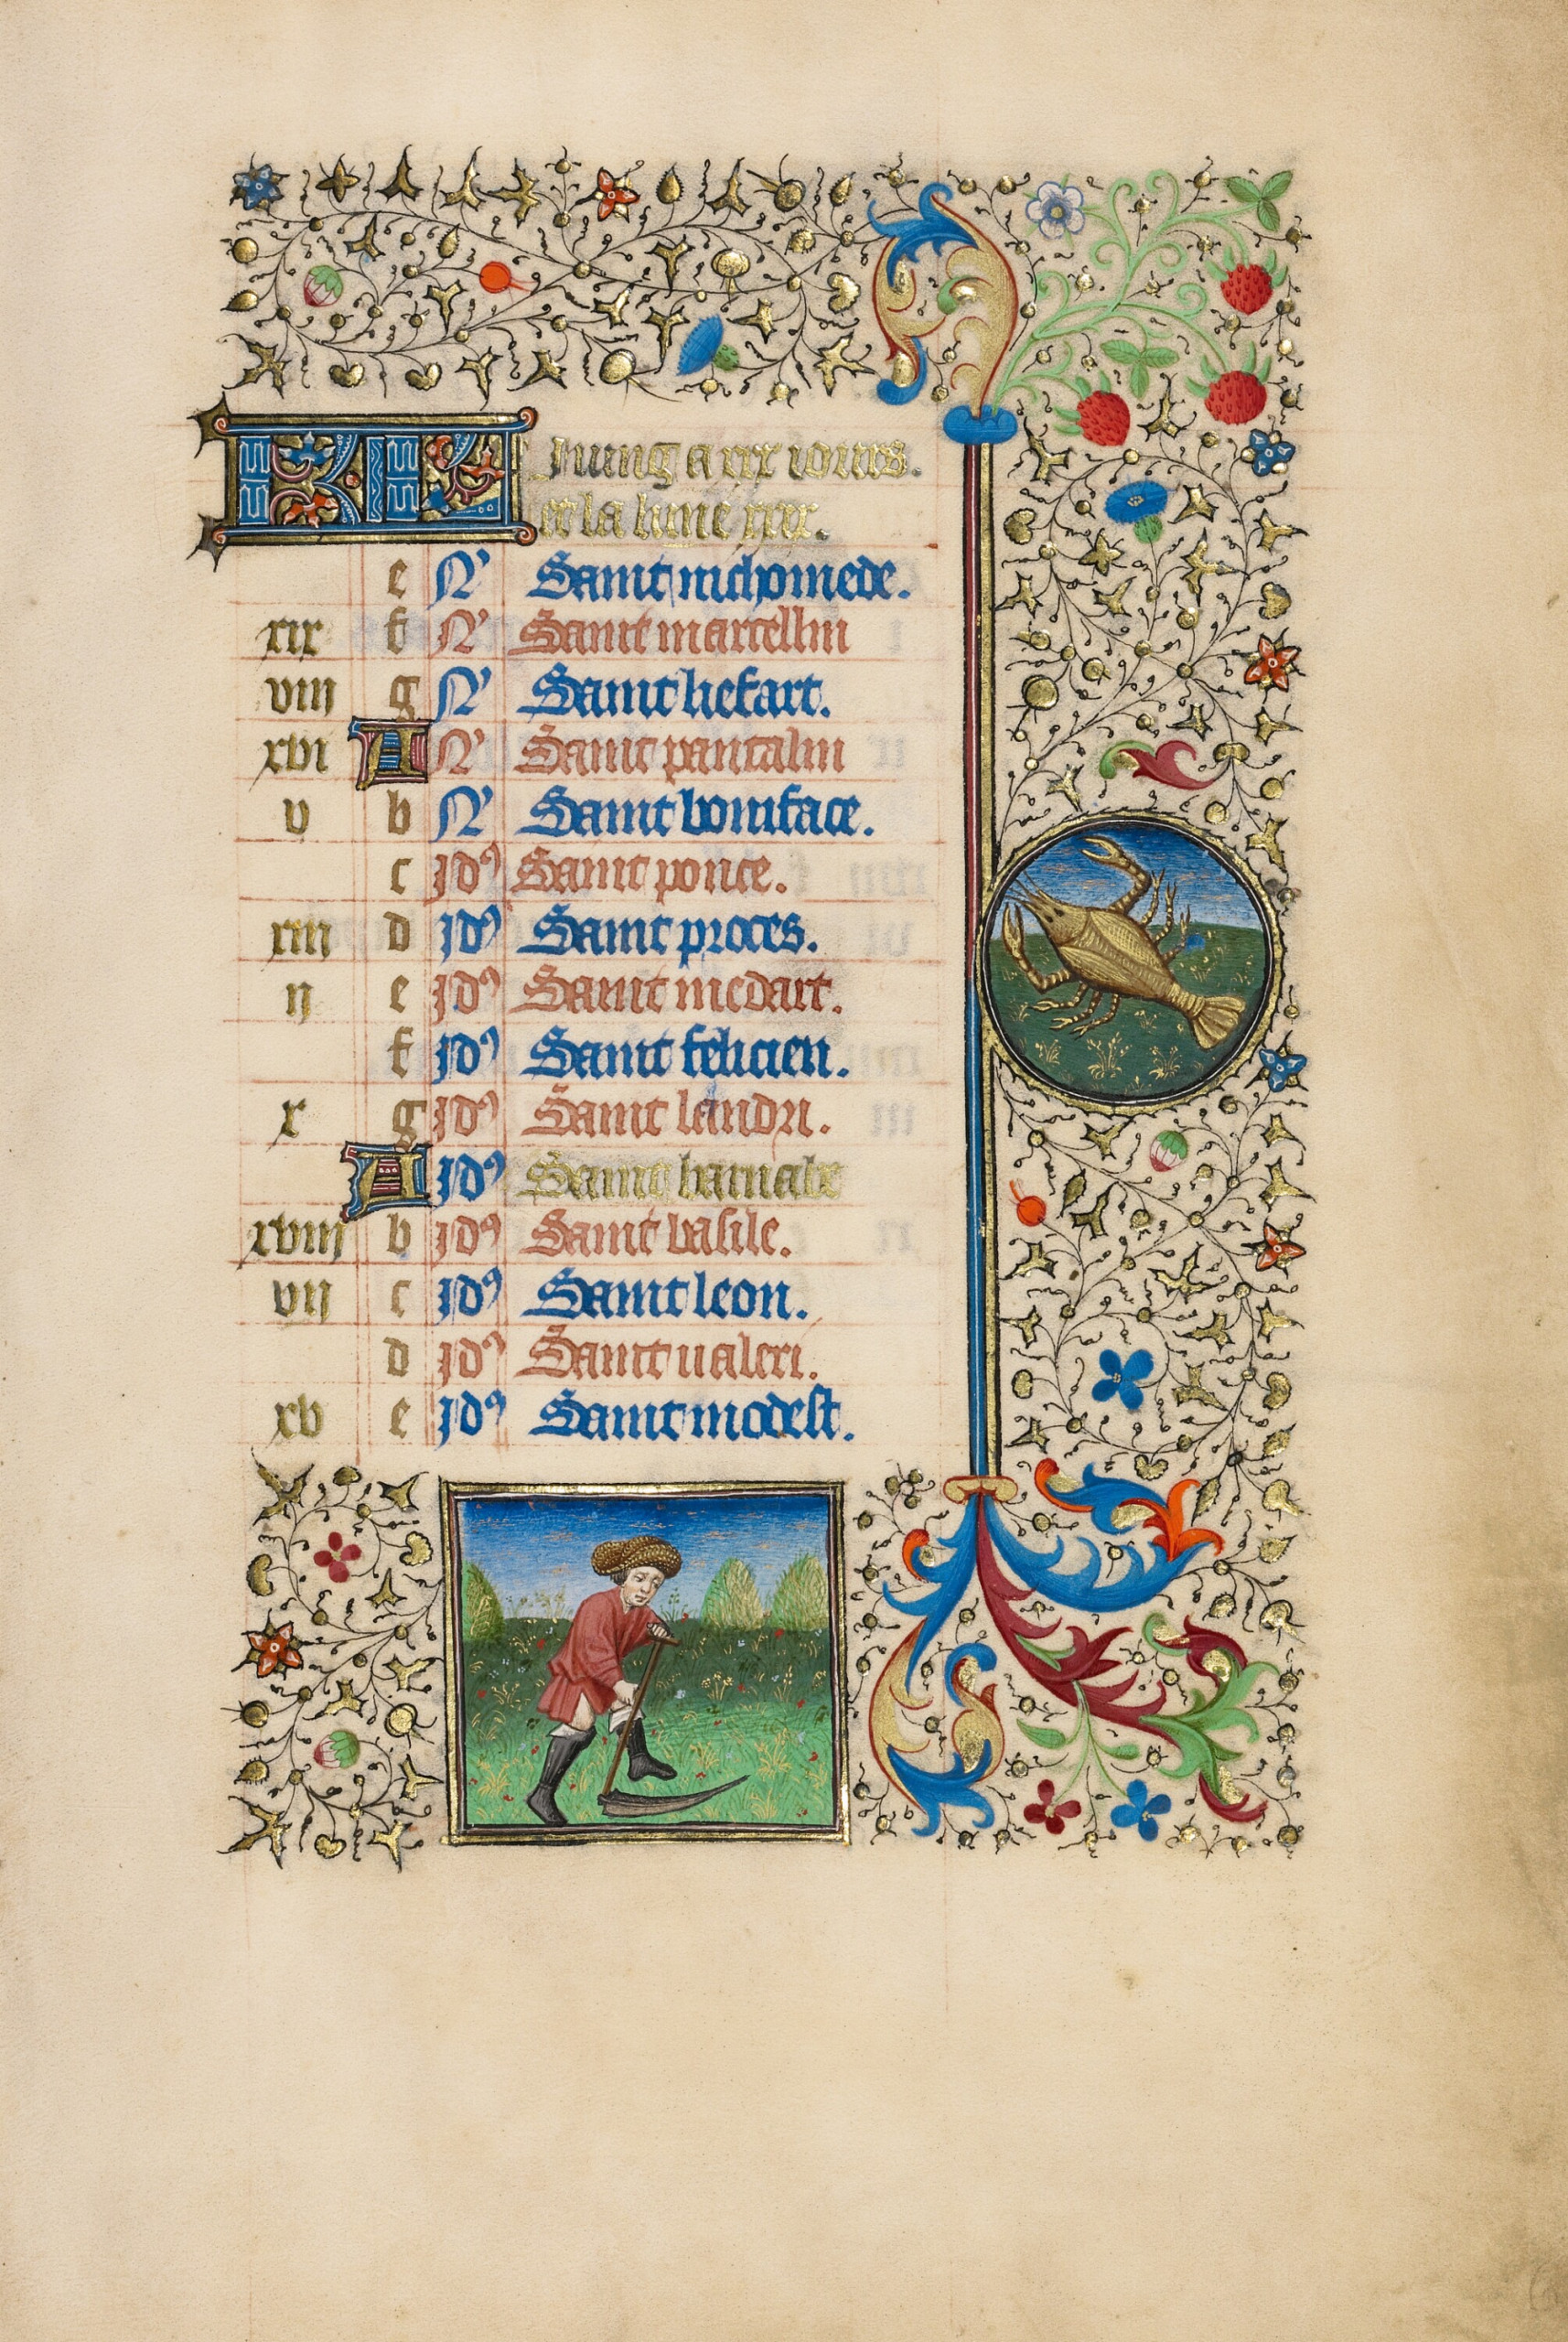 KL Juing a xxx iours.
et la lune xxix.
e N' Saint nichomede.
xix f N' Saint marcellin
viii g N' Saint liefart.
xvi A N' Saint pantalin
v b N' Saint boniface.
c Jd9 Saint ponce.
xiii d Jd9 Saint proces.
ii e Jd9 Saint medart.
f Jd9 Saint felicien.
x g Jd9 Saint landri.
A Jd9 Saint barnabe
xviii b Jd9 Saint basile.
vii c Jd9 Saint leon.
d Jd9 Saint ualeri.
xv e Jd9 Saint modest.